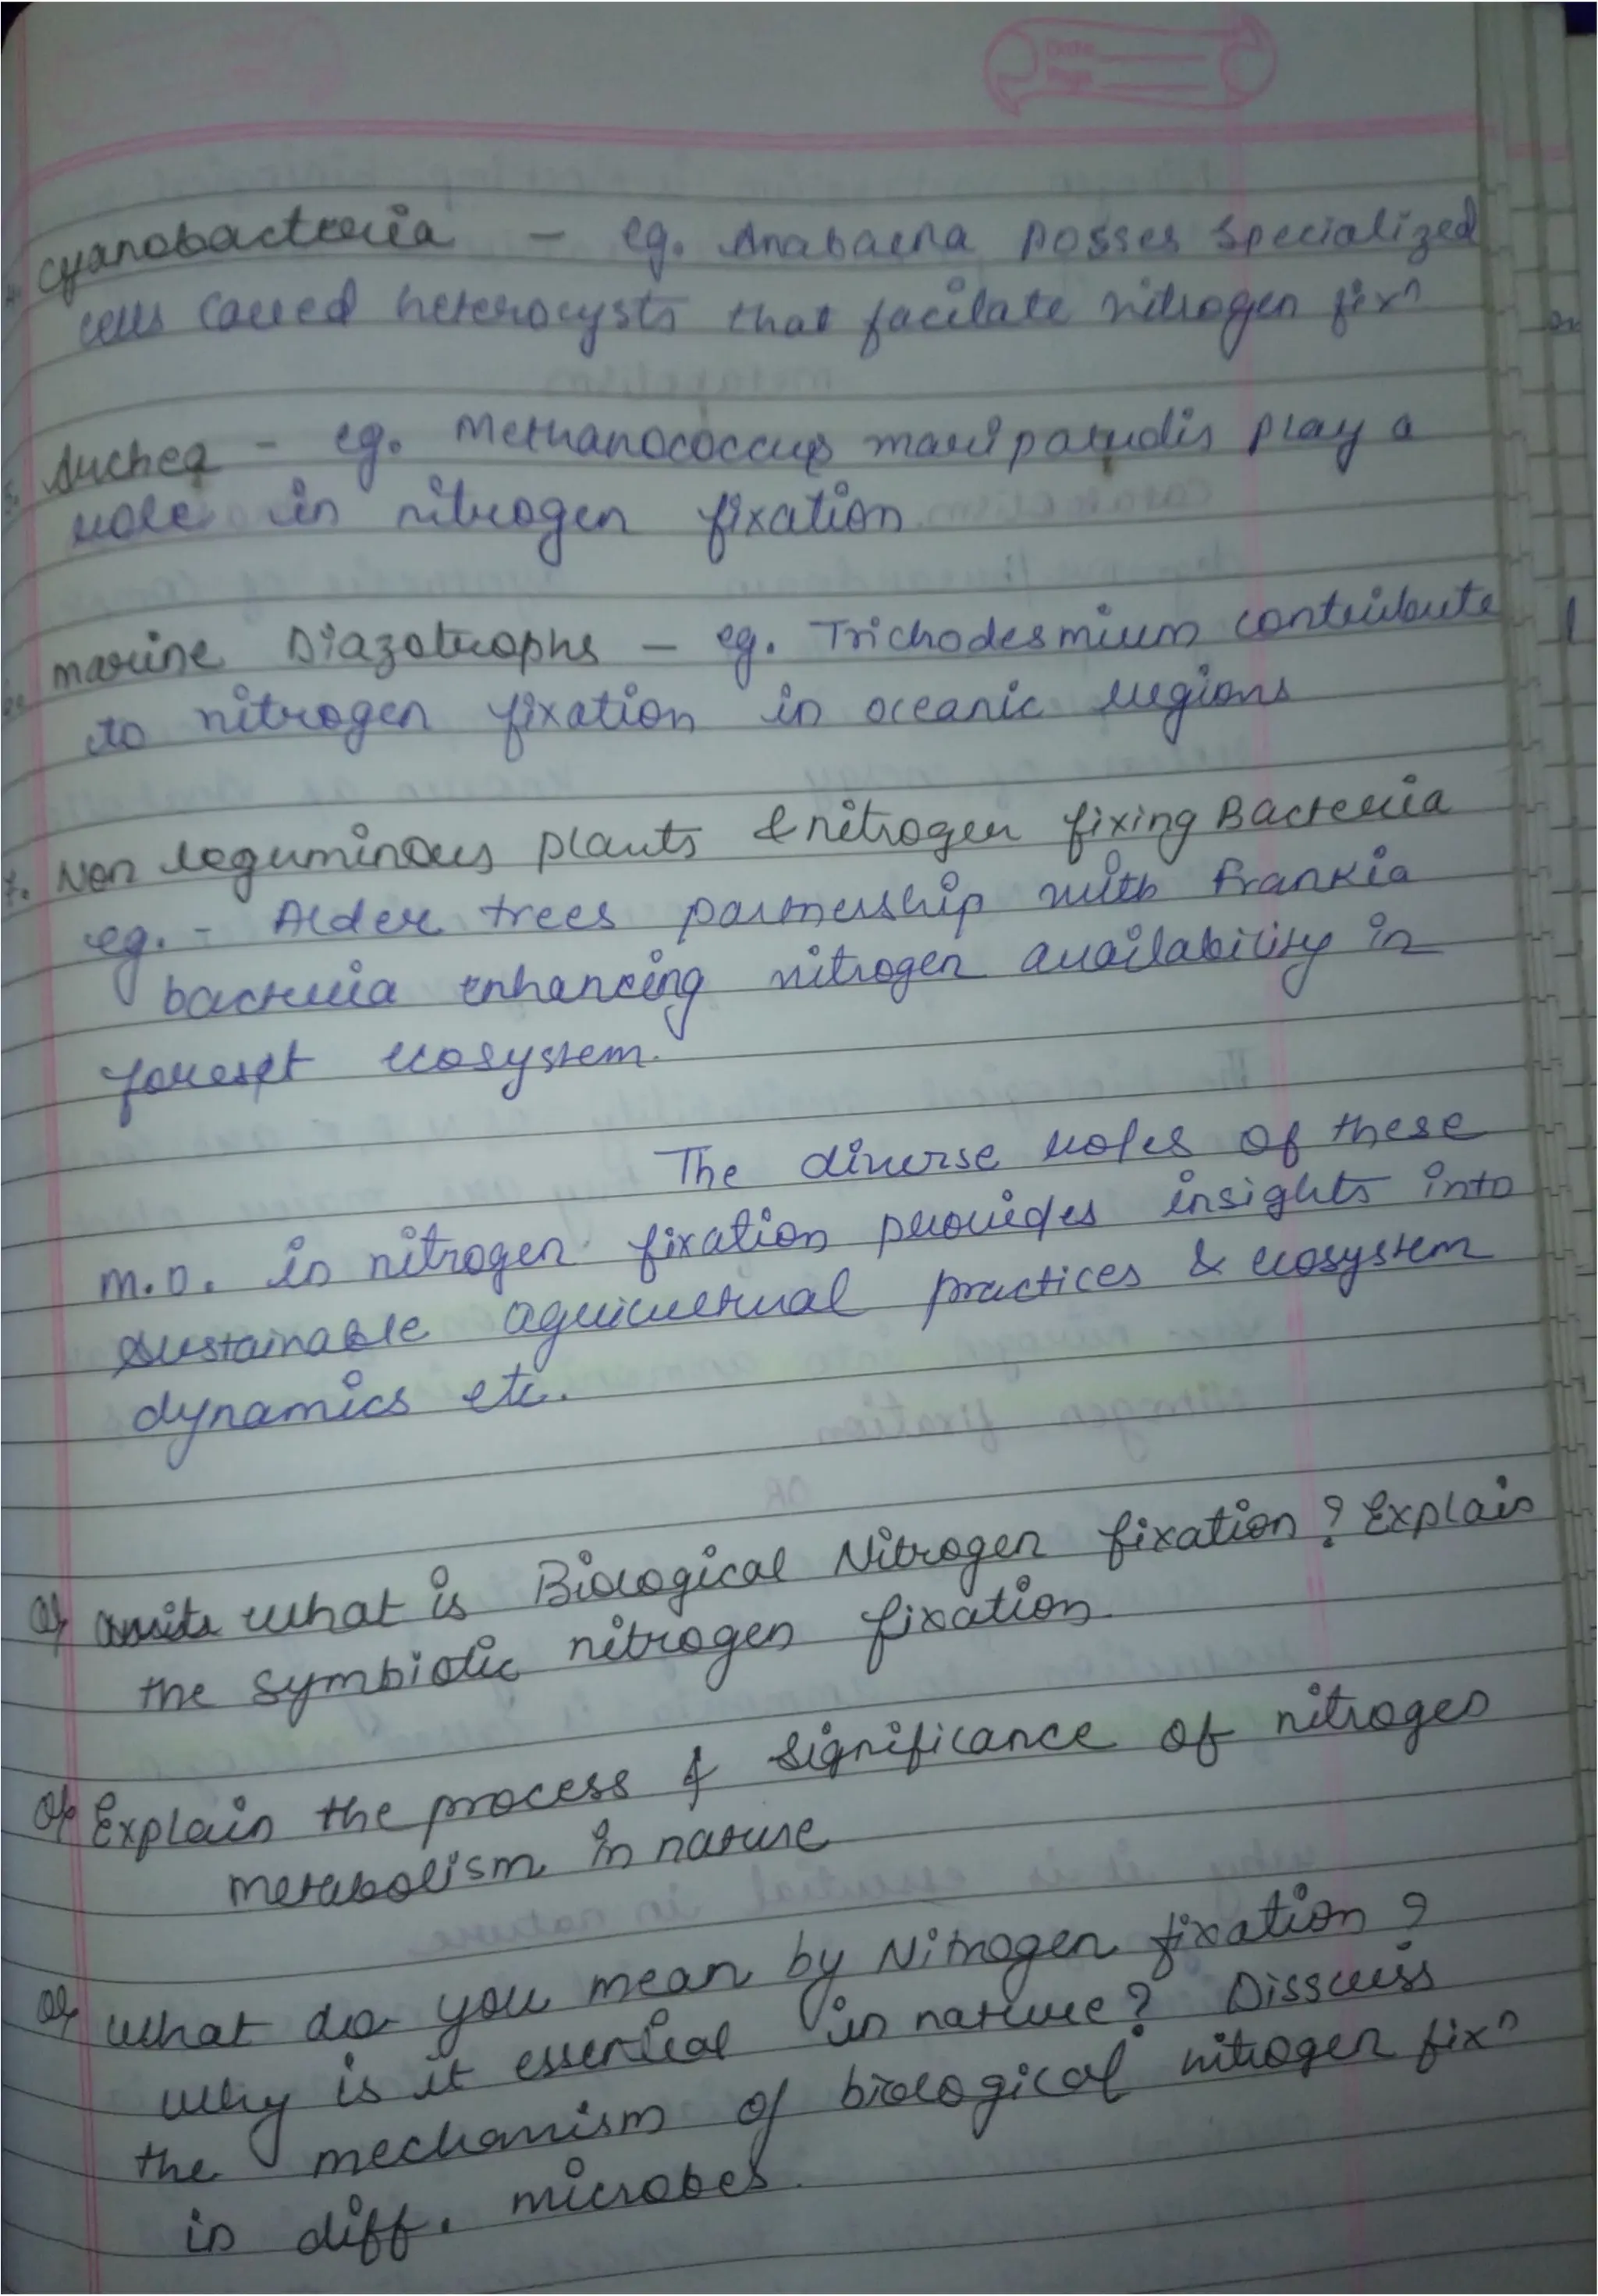 Date
Page
4. Cyanobacteria - eg. Anabaena posses specialized
cells called heterocysts that facilate nitrogen fixn
5. Archea - eg. Methanococcus maripaludis play a
role in nitrogen fixation
marine Diazotrophs - eg. Trichodesmium contribute
to nitrogen fixation in oceanic regions
7. Non leguminous plants & nitrogen fixing Bacteria
eg. - Alder trees partnership with Frankia
bacteria enhancing nitrogen availability in
forest ecosystem.
The diverse roles of these
m.o. in nitrogen fixation provides insights into
sustainable agricultural practices & ecosystem
dynamics etc.
Q What is Biological Nitrogen fixation? Explain
the symbiotic nitrogen fixation
Q Explain the process & significance of nitrogen
metabolism in nature
Q What do you mean by Nitrogen fixation?
Why is it essential in nature? Disscuss
the mechanism of biological nitrogen fixn
in diff. microbes.